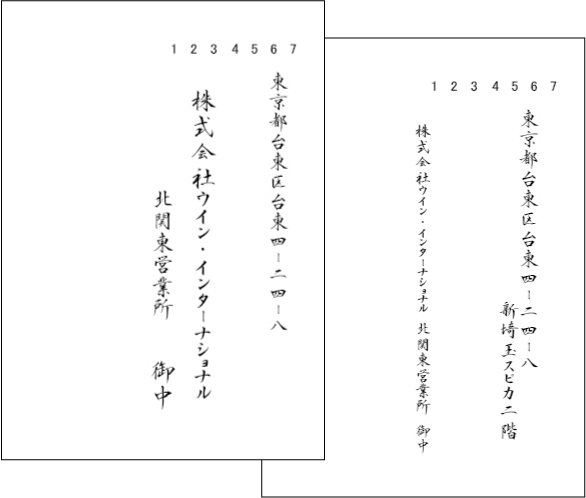 1234567
東京都台東区台東四ー二四ー八
株式会社ウイン・インターナショナル
北関東営業所　御中
1234567
東京都台東区台東四ー二四ー八
新埼玉スピカ二階
株式会社ウイン・インターナショナル 北関東営業所 御中